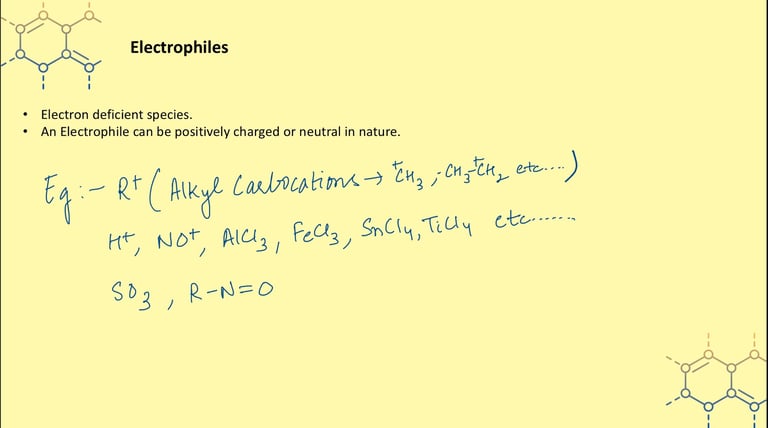 Electrophiles
• Electron deficient species.
• An Electrophile can be positively charged or neutral in nature.
Eg :- R⁺ (Alkyl Carbocations → ⁺CH₃, CH₃-⁺CH₂ etc....)
H⁺, NO⁺, AlCl₃, FeCl₃, SnCl₄, TiCl₄ etc.......
SO₃, R-N=O